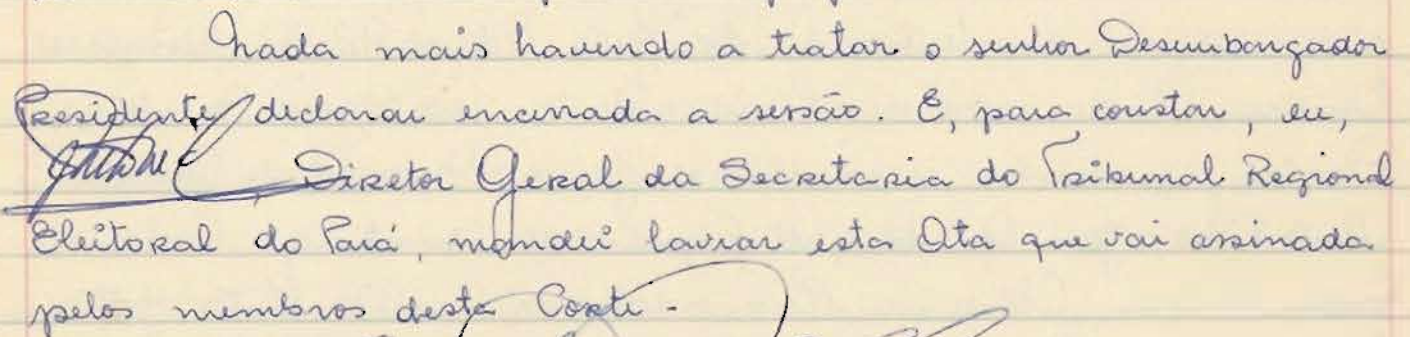 Nada mais havendo a tratar o senhor Desembargador
Presidente declarou encerrada a sessão. E, para constar, eu,
Diretor Geral da Secretaria do Tribunal Regional
Eleitoral do Pará, mandei lavrar esta Ata que vai assinada
pelos membros desta Corte.-